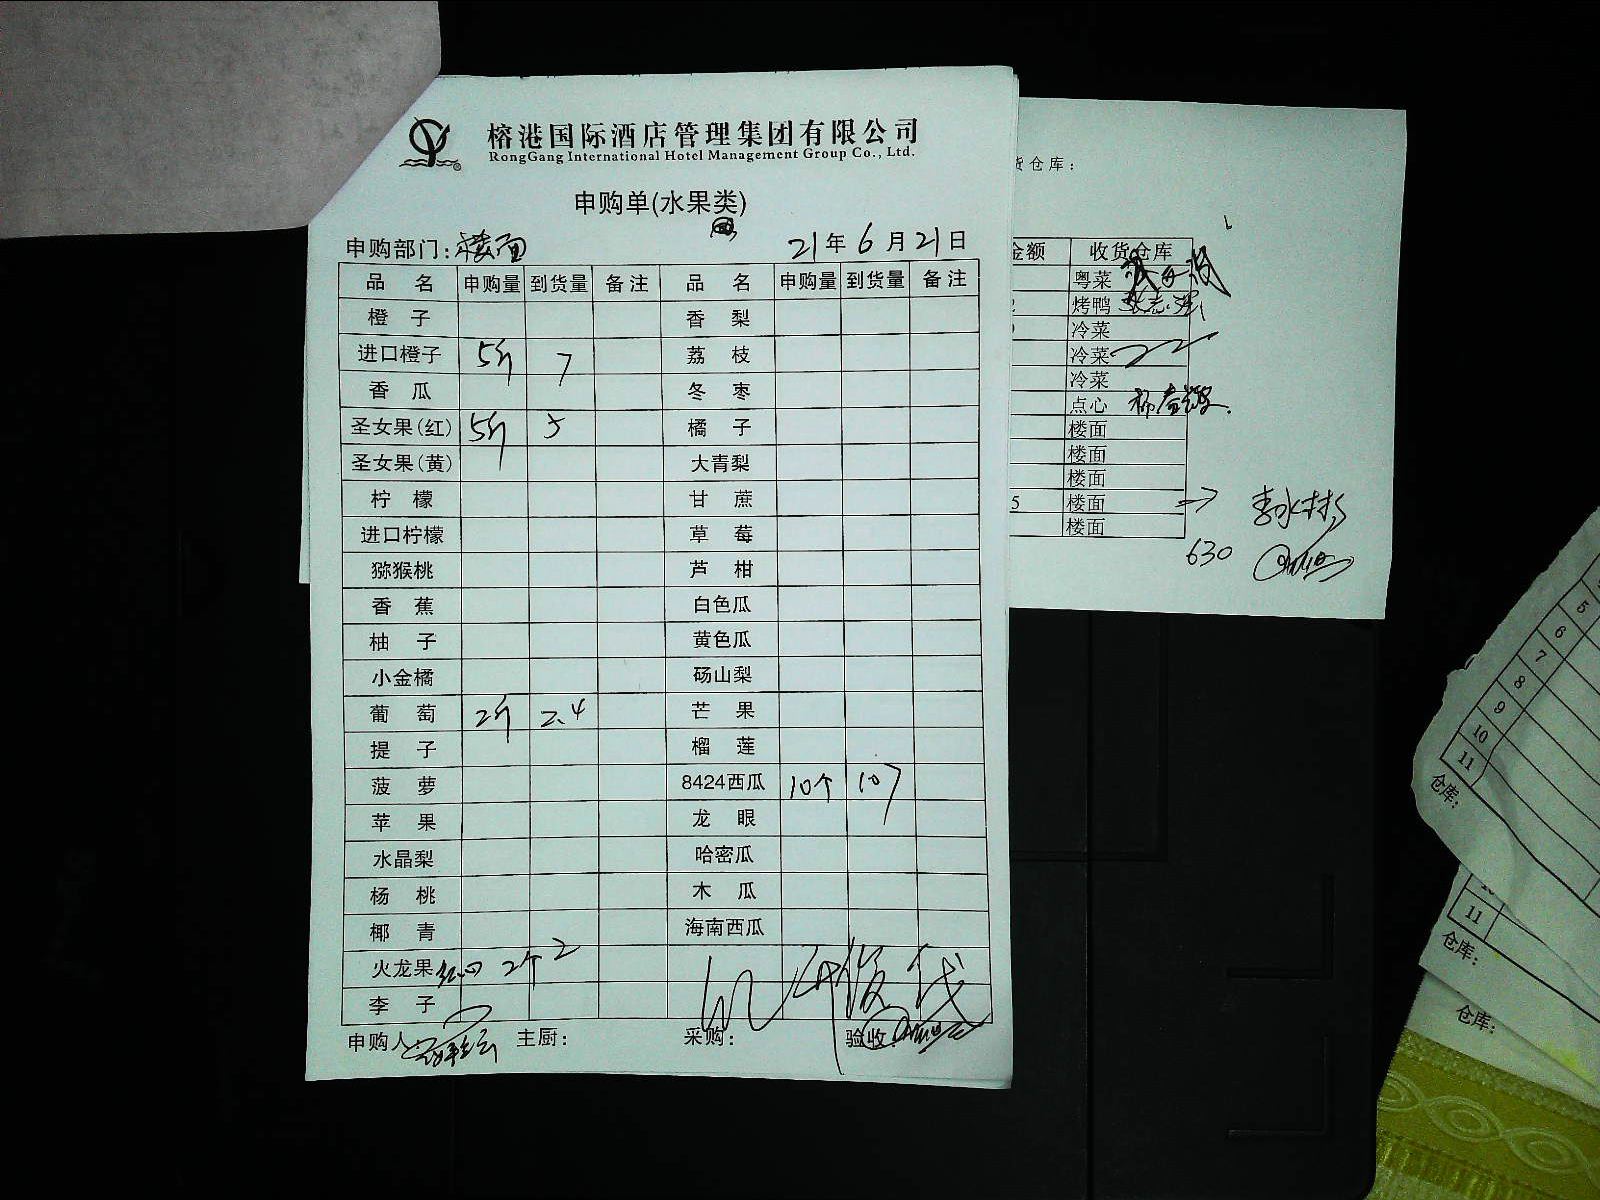 榕港国际酒店管理集团有限公司
RongGang International Hotel Management Group Co., Ltd.
申购单(水果类)
申购部门:楼面 21年6月21日
品名 申购量 到货量 备注 品名 申购量 到货量 备注
橙子 香梨
进口橙子 5斤 7 荔枝
香瓜 冬枣
圣女果(红) 5斤 5 橘子
圣女果(黄) 大青梨
柠檬 甘蔗
进口柠檬 草莓
猕猴桃 芦柑
香蕉 白色瓜
柚子 黄色瓜
小金橘 砀山梨
葡萄 2斤 2.4 芒果
提子 榴莲
菠萝 8424西瓜 10个 10
苹果 龙眼
水晶梨 哈密瓜
杨桃 木瓜
椰青 海南西瓜
火龙果 红心 2个 2
李子
申购人 主厨: 采购: 验收:
货仓库:
金额 收货仓库
粤菜
烤鸭
冷菜
冷菜
冷菜
点心
楼面
楼面
楼面
5 楼面
楼面
630
5
6
7
8
9
10
11
仓库:
11
仓库:
仓库: